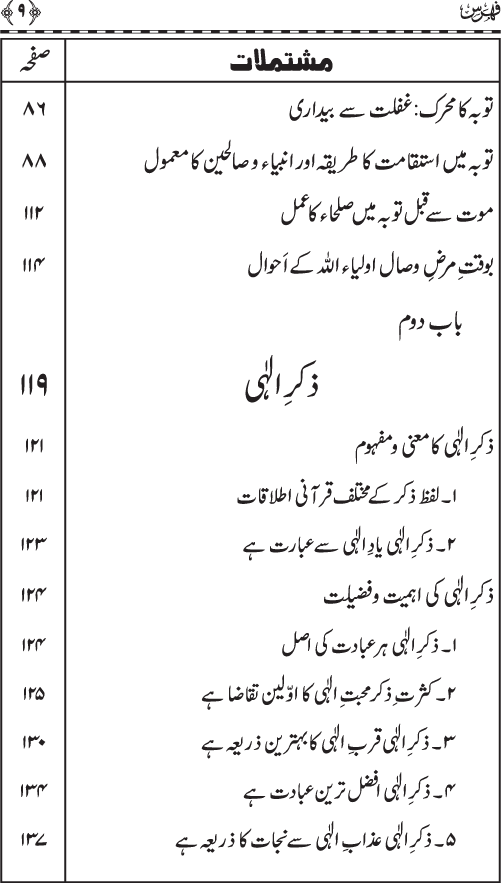 فہرس ﴿۹﴾
مشتملات صفحہ
توبہ کا محرک: غفلت سے بیداری ۸۶
توبہ میں استقامت کا طریقہ اور انبیاء و صالحین کا معمول ۸۸
موت سے قبل توبہ میں صلحاء کا عمل ۱۱۲
بوقتِ مرضِ وصال اولیاء اللہ کے اَحوال ۱۱۴
باب دوم
ذکرِ الٰہی ۱۱۹
ذکرِ الٰہی کا معنی و مفہوم ۱۲۱
۱۔ لفظ ذکر کے مختلف قرآنی اطلاقات ۱۲۱
۲۔ ذکرِ الٰہی یادِ الٰہی سے عبارت ہے ۱۲۳
ذکرِ الٰہی کی اہمیت و فضیلت ۱۲۴
۱۔ ذکرِ الٰہی ہر عبادت کی اصل ۱۲۴
۲۔ کثرتِ ذکر محبتِ الٰہی کا اوّلین تقاضا ہے ۱۲۵
۳۔ ذکرِ الٰہی قربِ الٰہی کا بہترین ذریعہ ہے ۱۳۰
۴۔ ذکرِ الٰہی افضل ترین عبادت ہے ۱۳۴
۵۔ ذکرِ الٰہی عذابِ الٰہی سے نجات کا ذریعہ ہے ۱۳۷